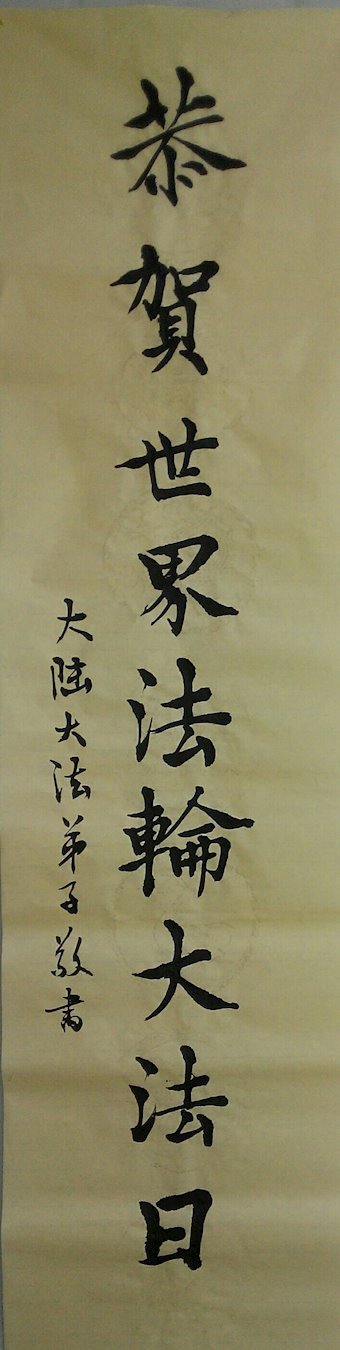 恭賀世界法輪大法日
大陆大法弟子敬書